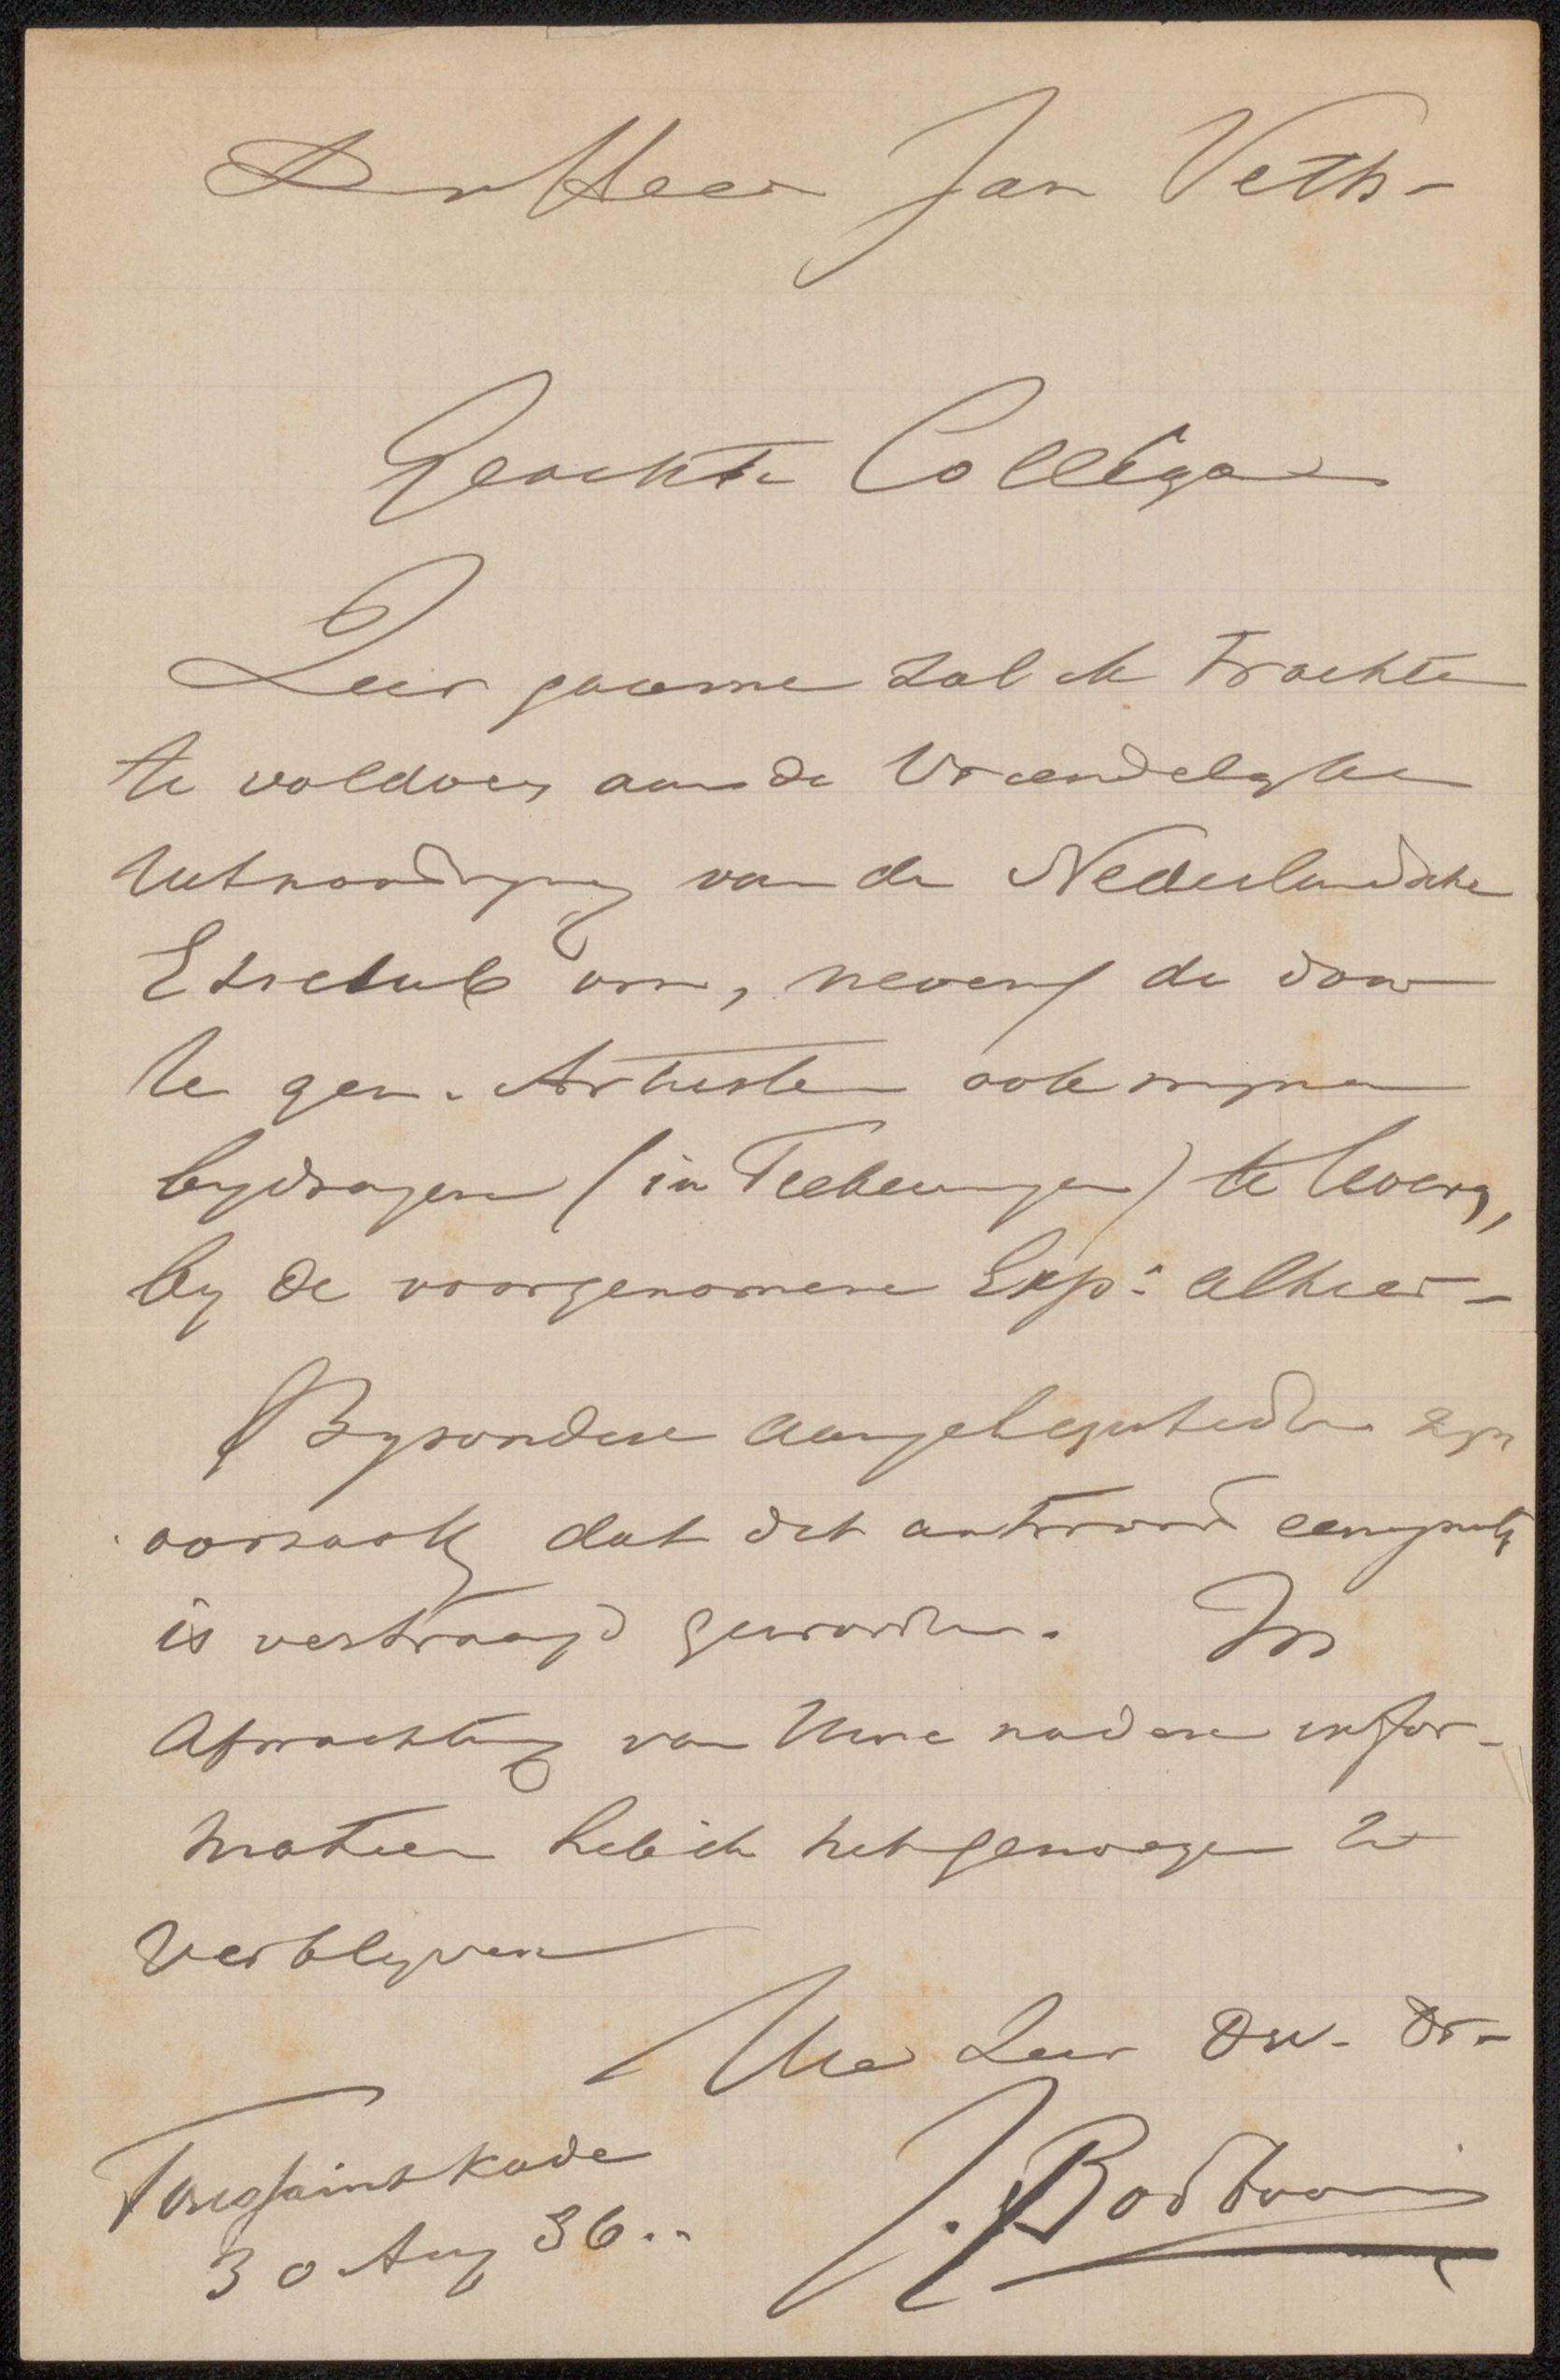 Den Heer Jan Veth -
Geachte Collega
Zeer gaarne zal ik trachten
te voldoen aan de Vriendelyke
Uitnoodiging van de Nederlandsche
Etsclub om, nevens de door
U gen. Artisten ook myne
bydragen (in Teekeningen) te leveren,
by de voorgenomene Exp: alhier -
Byzondere aangelegenheden zyn
oorzaak dat dit antwoord eenigzints
is vertraagd geworden. In
Afwachting van Uwe nadere infor-
matien heb ik het genoegen te
verblyven
Uwe Zeer Dw. Dr-
Toussaintkade
30 Aug 86..
J. Bosboom